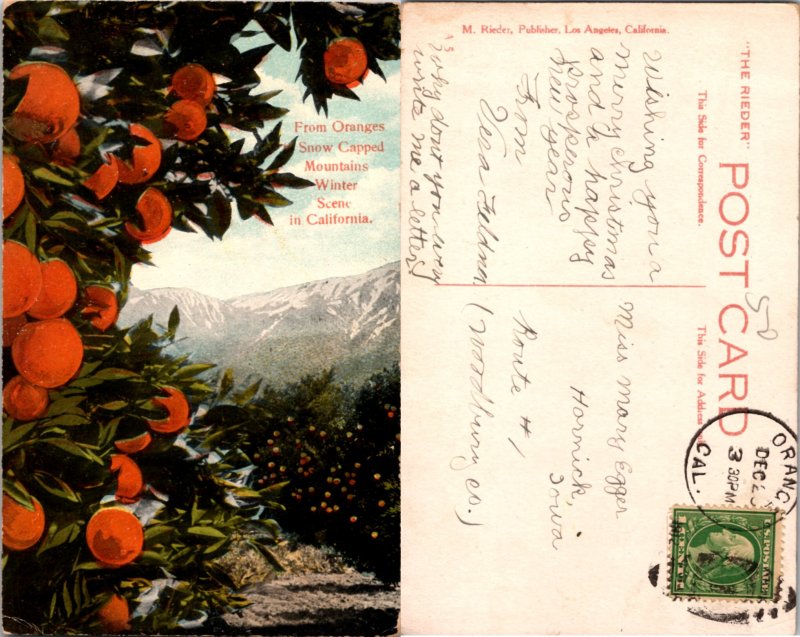 From Oranges
Snow Capped
Mountains
Winter
Scene
in California.
M. Rieder, Publisher, Los Angeles, California.
"THE RIEDER"
POST CARD
This Side for Correspondence.
This Side for Address
Wishing you a
merry christmas
and a happy
prosperous
new year
From
Vera Feldner
Why dont you
write me a letter
Miss Mary Egger
Hornick,
Iowa
Route #1
(Woodbury co.)
50
ORANG
CAL.
DEC 2
3 30PM
U.S. POSTAGE
1 CENT 1